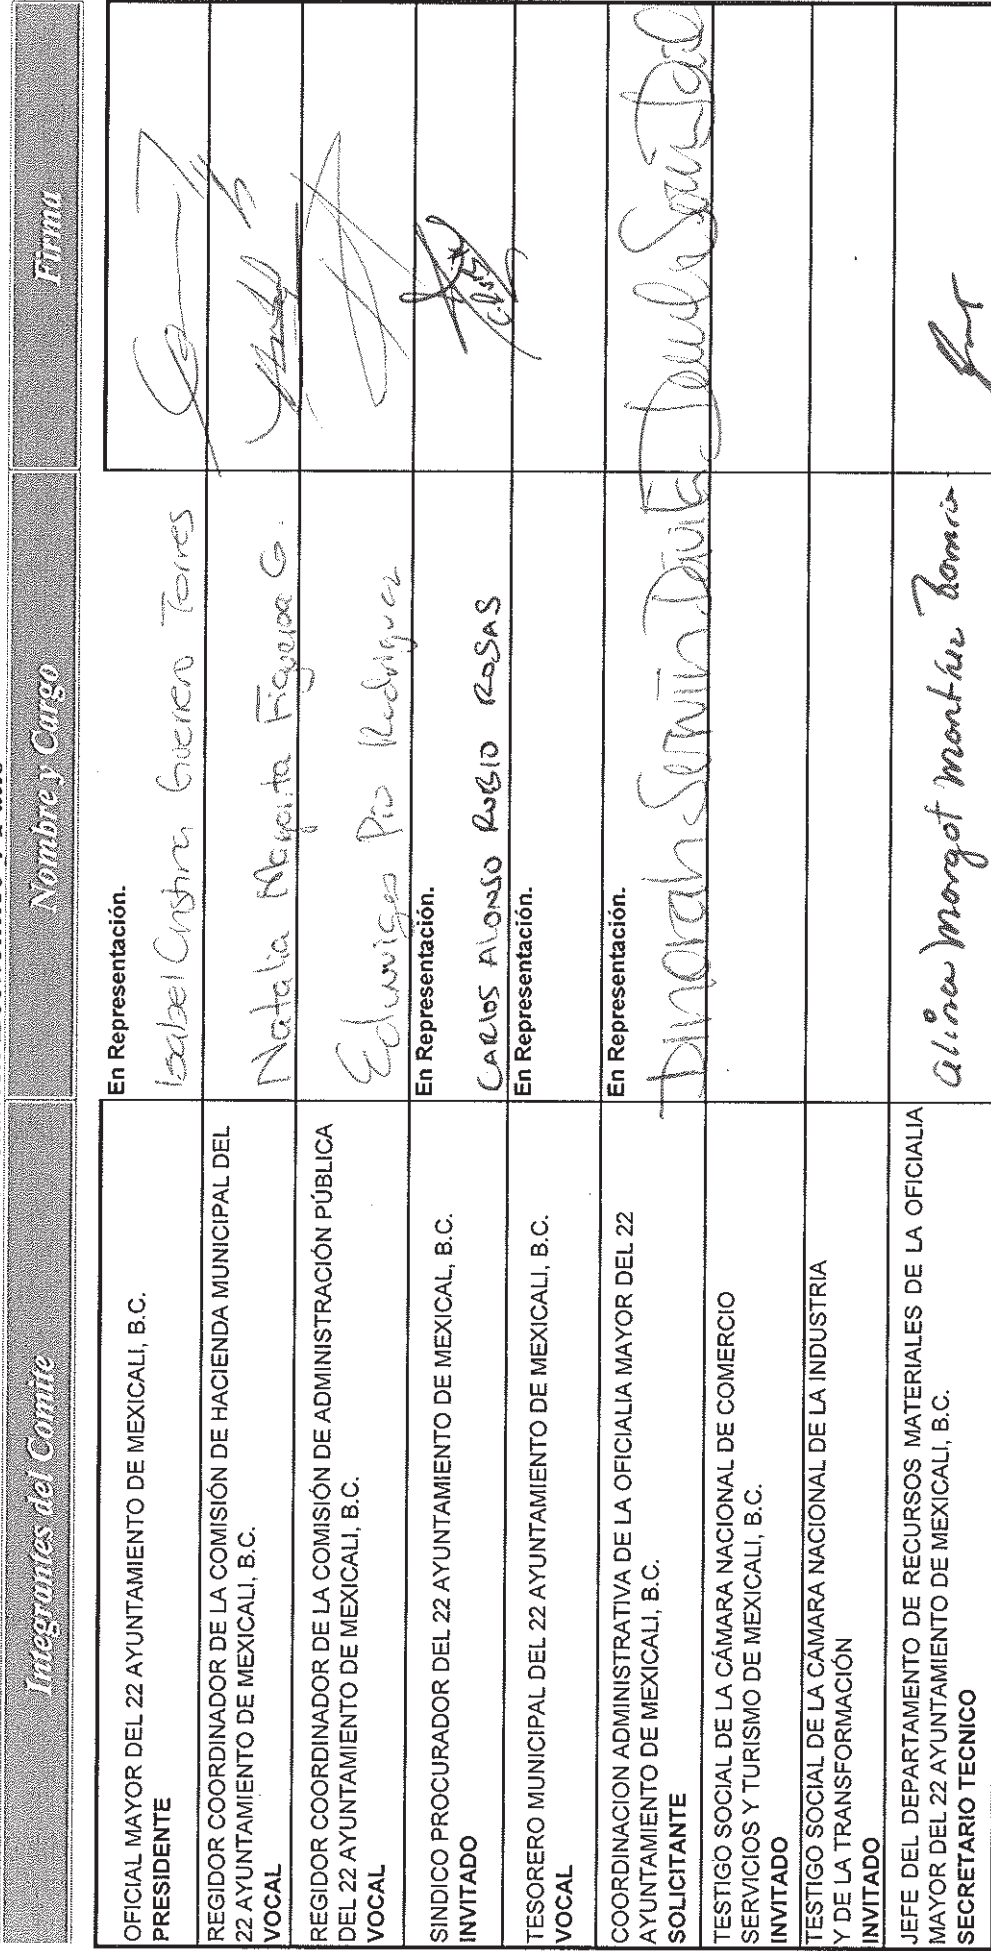 Integrantes del Comite
Nombre y Cargo
Firma
OFICIAL MAYOR DEL 22 AYUNTAMIENTO DE MEXICALI, B.C.
PRESIDENTE
En Representación.
Isabel Cristina Guerrero Torres
REGIDOR COORDINADOR DE LA COMISIÓN DE HACIENDA MUNICIPAL DEL
22 AYUNTAMIENTO DE MEXICALI, B.C.
VOCAL
Natalia Margarita Figueroa G.
REGIDOR COORDINADOR DE LA COMISIÓN DE ADMINISTRACIÓN PÚBLICA
DEL 22 AYUNTAMIENTO DE MEXICALI, B.C.
VOCAL
Eduwiges Pio Rodriguez
SINDICO PROCURADOR DEL 22 AYUNTAMIENTO DE MEXICAL, B.C.
INVITADO
En Representación.
CARLOS ALONSO RUBIO ROSAS
TESORERO MUNICIPAL DEL 22 AYUNTAMIENTO DE MEXICALI, B.C.
VOCAL
En Representación.
COORDINACION ADMINISTRATIVA DE LA OFICIALIA MAYOR DEL 22
AYUNTAMIENTO DE MEXICALI, B.C.
SOLICITANTE
En Representación.
Dinorah Servin Davila
TESTIGO SOCIAL DE LA CÁMARA NACIONAL DE COMERCIO
SERVICIOS Y TURISMO DE MEXICALI, B.C.
INVITADO
TESTIGO SOCIAL DE LA CÁMARA NACIONAL DE LA INDUSTRIA
Y DE LA TRANSFORMACIÓN
INVITADO
JEFE DEL DEPARTAMENTO DE RECURSOS MATERIALES DE LA OFICIALIA
MAYOR DEL 22 AYUNTAMIENTO DE MEXICALI, B.C.
SECRETARIO TECNICO
alina margot